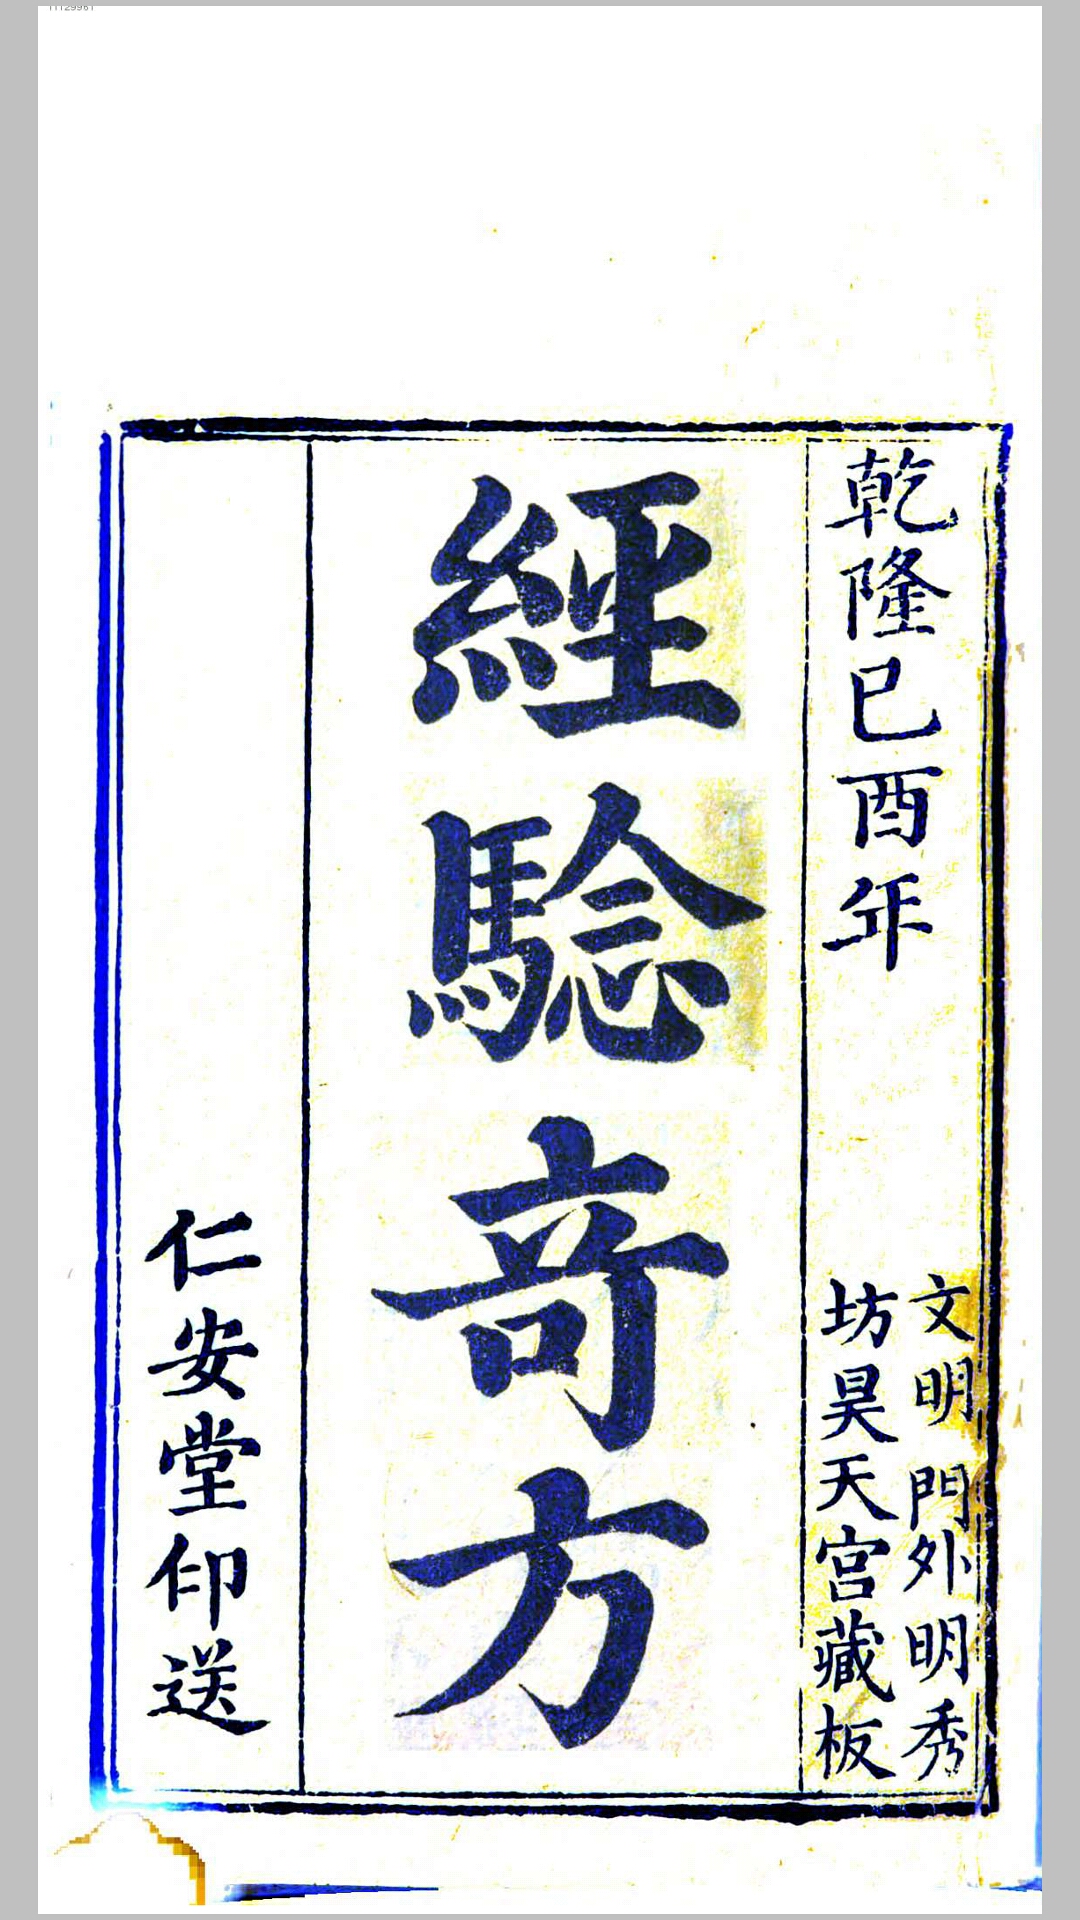 乾隆己酉年
文明門外明秀
坊昊天宮藏板
經騐竒方
仁安堂印送